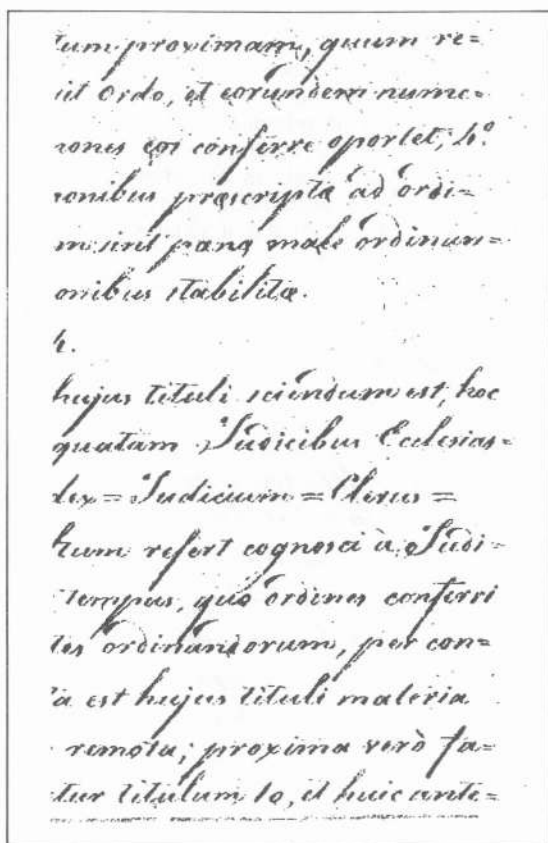 tum proximam, quum re=
it Ordo, et eorundem nume=
iones eos conferre oportet; 4º
ionibus præscripta ad ordi=
m sint pœnæ male ordinan=
onibus stabilitæ.
4.
hujus tituli sciendum est, hoc
quatam Judicibus Ecclesias=
dex = Judicium = Clerus =
tum refert cognosci à Judi=
tempus, quo ordines conferri
tes ordinandorum, per con=
a est hujus tituli materia
remota; proxima verò fa=
tur titulum 10, et huic ante=